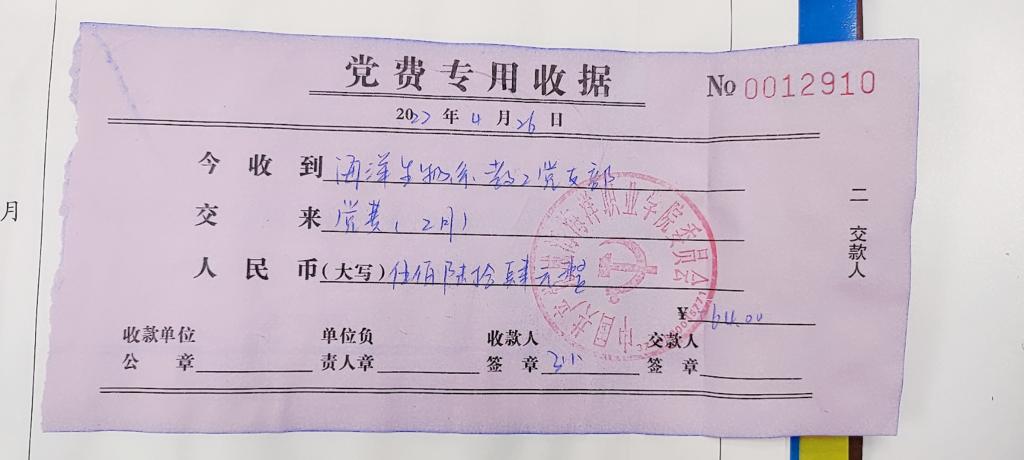 党费专用收据
No 0012910
2022年4月26日
今收到 海洋生物系教工党支部
交来 党费(2月)
人民币(大写)伍佰陆拾肆元整
¥ 564.00
二 交款人
收款单位 单位负 收款人 交款人
公章 责人章 签章 签章
月